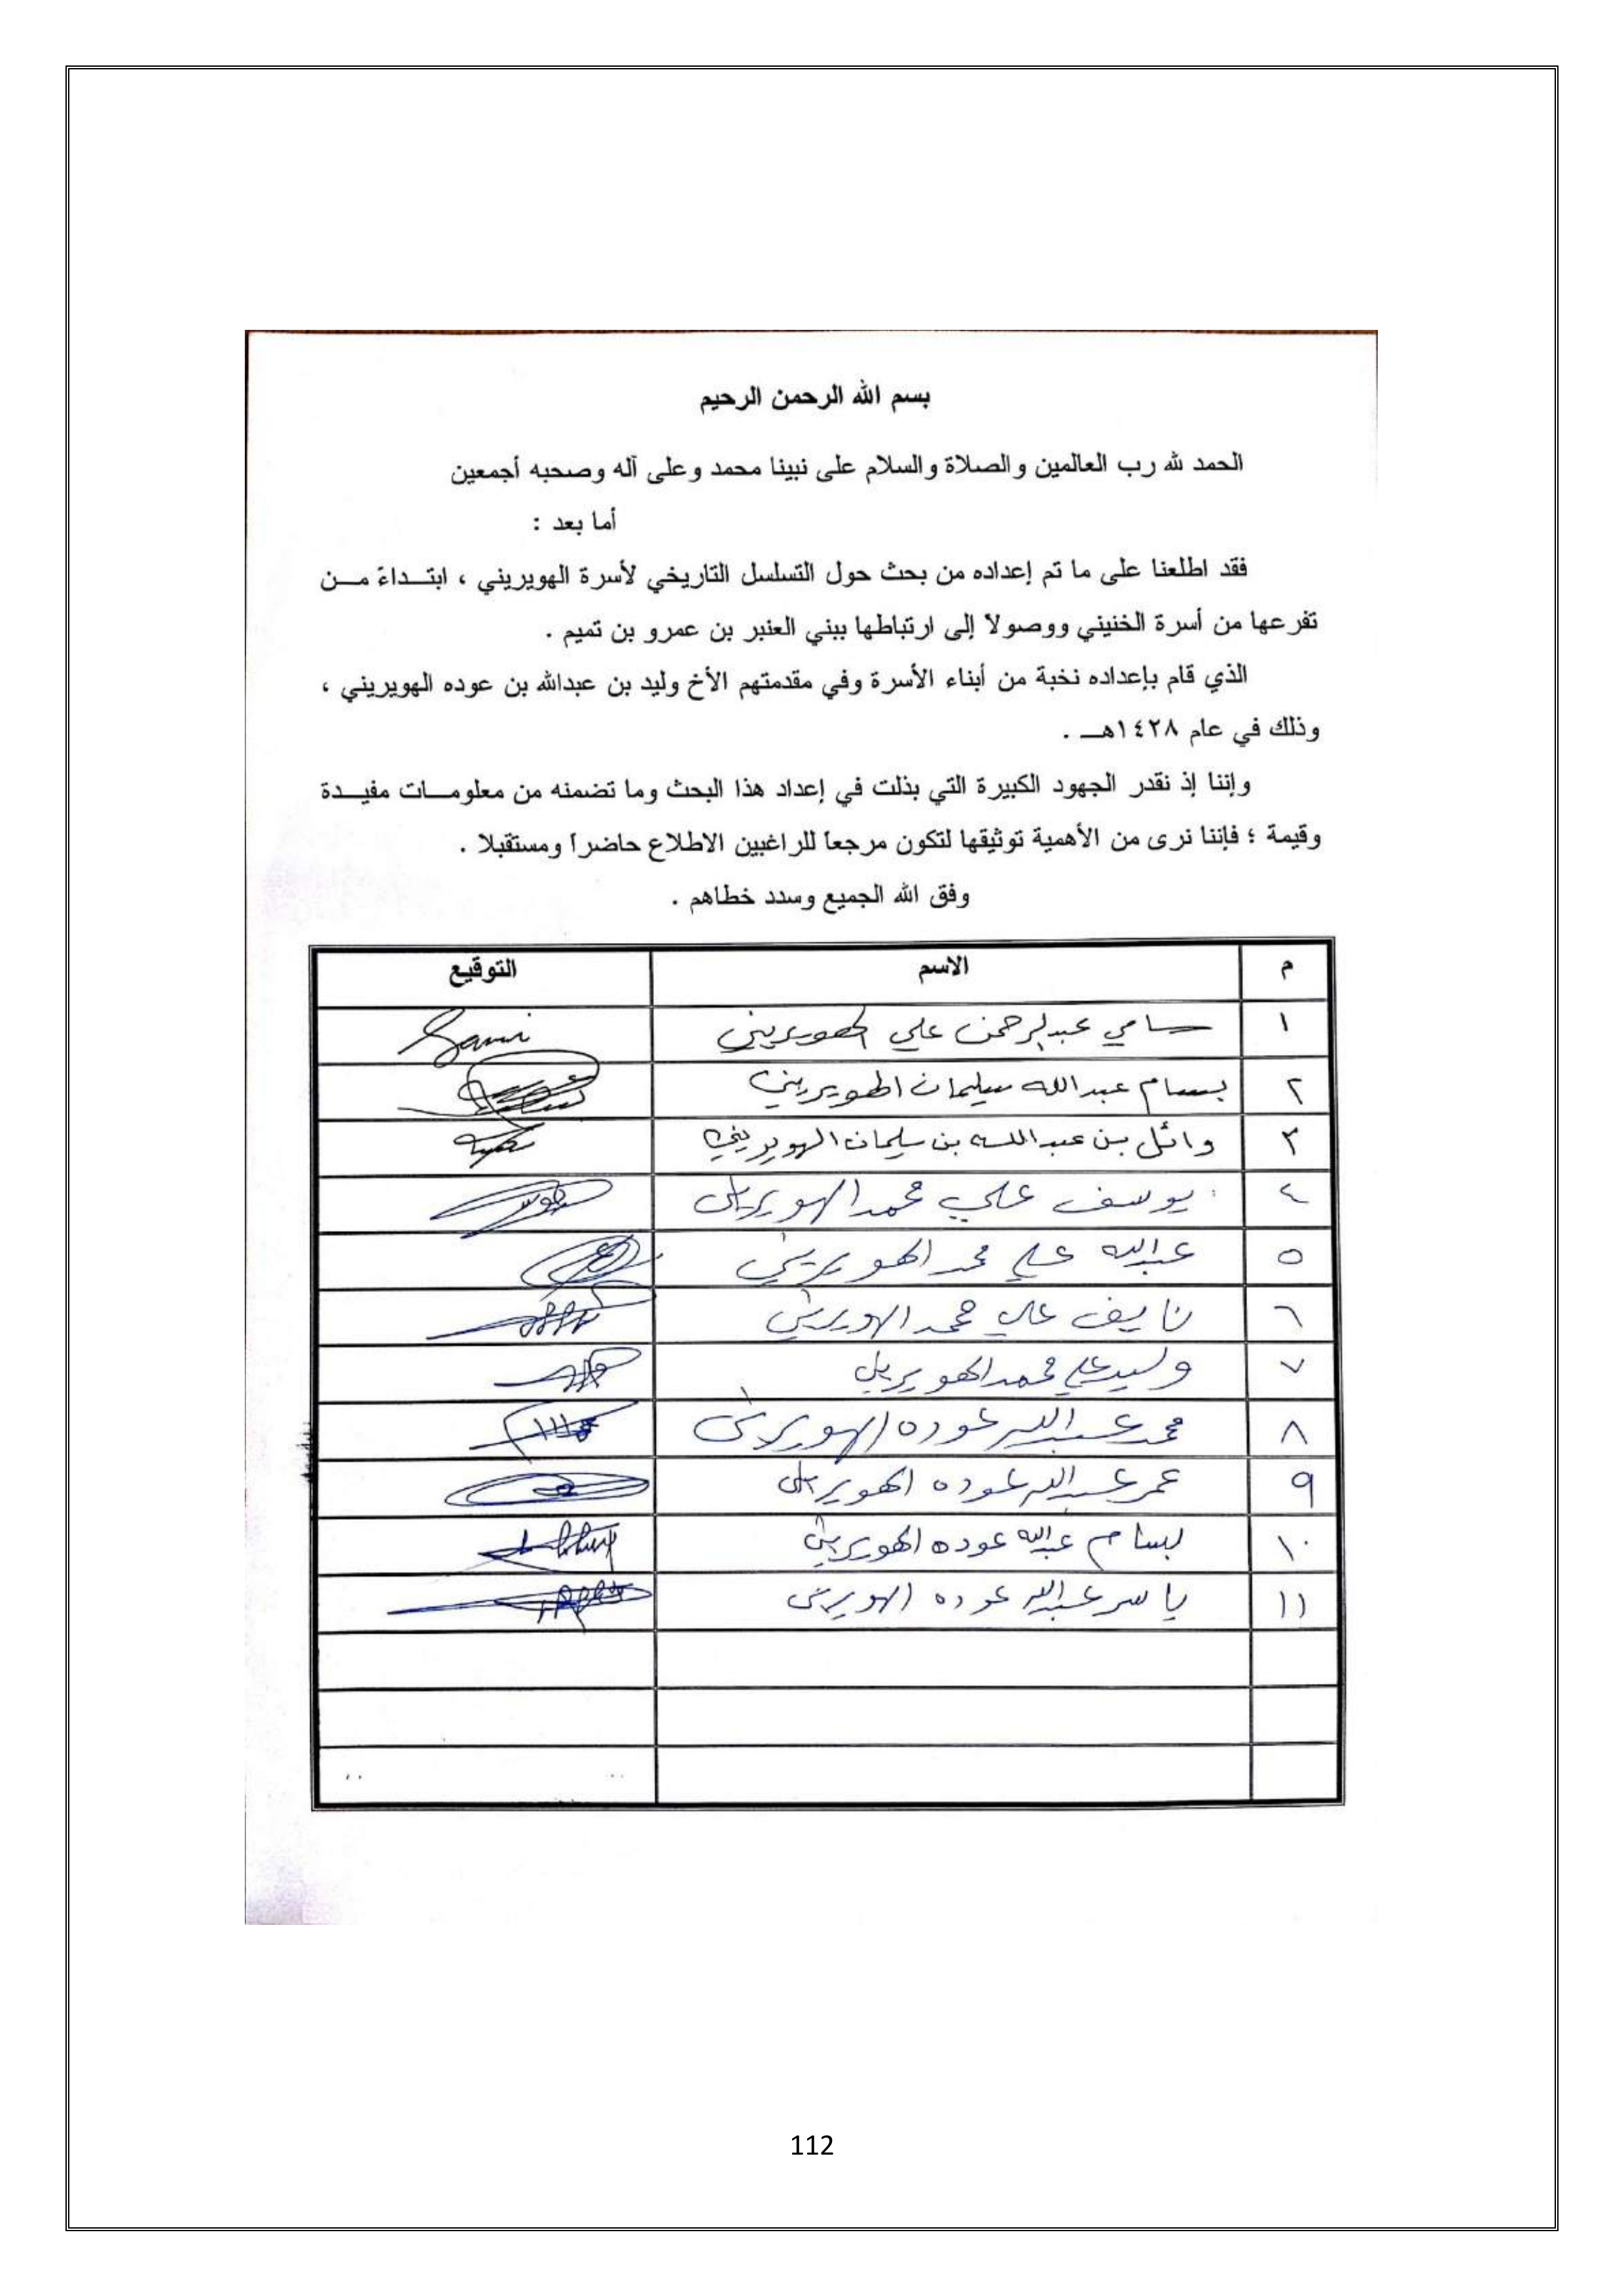 بسم الله الرحمن الرحيم
الحمد لله رب العالمين والصلاة والسلام على نبينا محمد وعلى آله وصحبه أجمعين
أما بعد :
فقد اطلعنا على ما تم إعداده من بحث حول التسلسل التاريخي لأسرة الهويريني ، ابتــداءً مــن
تفرعها من أسرة الخنيني ووصولاً إلى ارتباطها ببني العنبر بن عمرو بن تميم .
الذي قام بإعداده نخبة من أبناء الأسرة وفي مقدمتهم الأخ وليد بن عبدالله بن عوده الهويريني ،
وذلك في عام ١٤٢٨هــ .
وإننا إذ نقدر الجهود الكبيرة التي بذلت في إعداد هذا البحث وما تضمنه من معلومــات مفيــدة
وقيمة ؛ فإننا نرى من الأهمية توثيقها لتكون مرجعاً للراغبين الاطلاع حاضراً ومستقبلا .
وفق الله الجميع وسدد خطاهم .
م الاسم التوقيع
١ سامي عبدالرحمن علي الهويريني Sami
٢ بسام عبدالله سليمان الهويريني
٣ وائل بن عبدالله بن سليمان الهويريني
٤ يوسف علي محمد الهويريني
٥ عبدالله علي محمد الهويريني
٦ نايف علي محمد الهويريني
٧ وليد علي محمد الهويريني
٨ محمد عبدالله عوده الهويريني
٩ عمر عبدالله عوده الهويريني
١٠ بسام عبدالله عوده الهويريني
١١ ياسر عبدالله عوده الهويريني
112